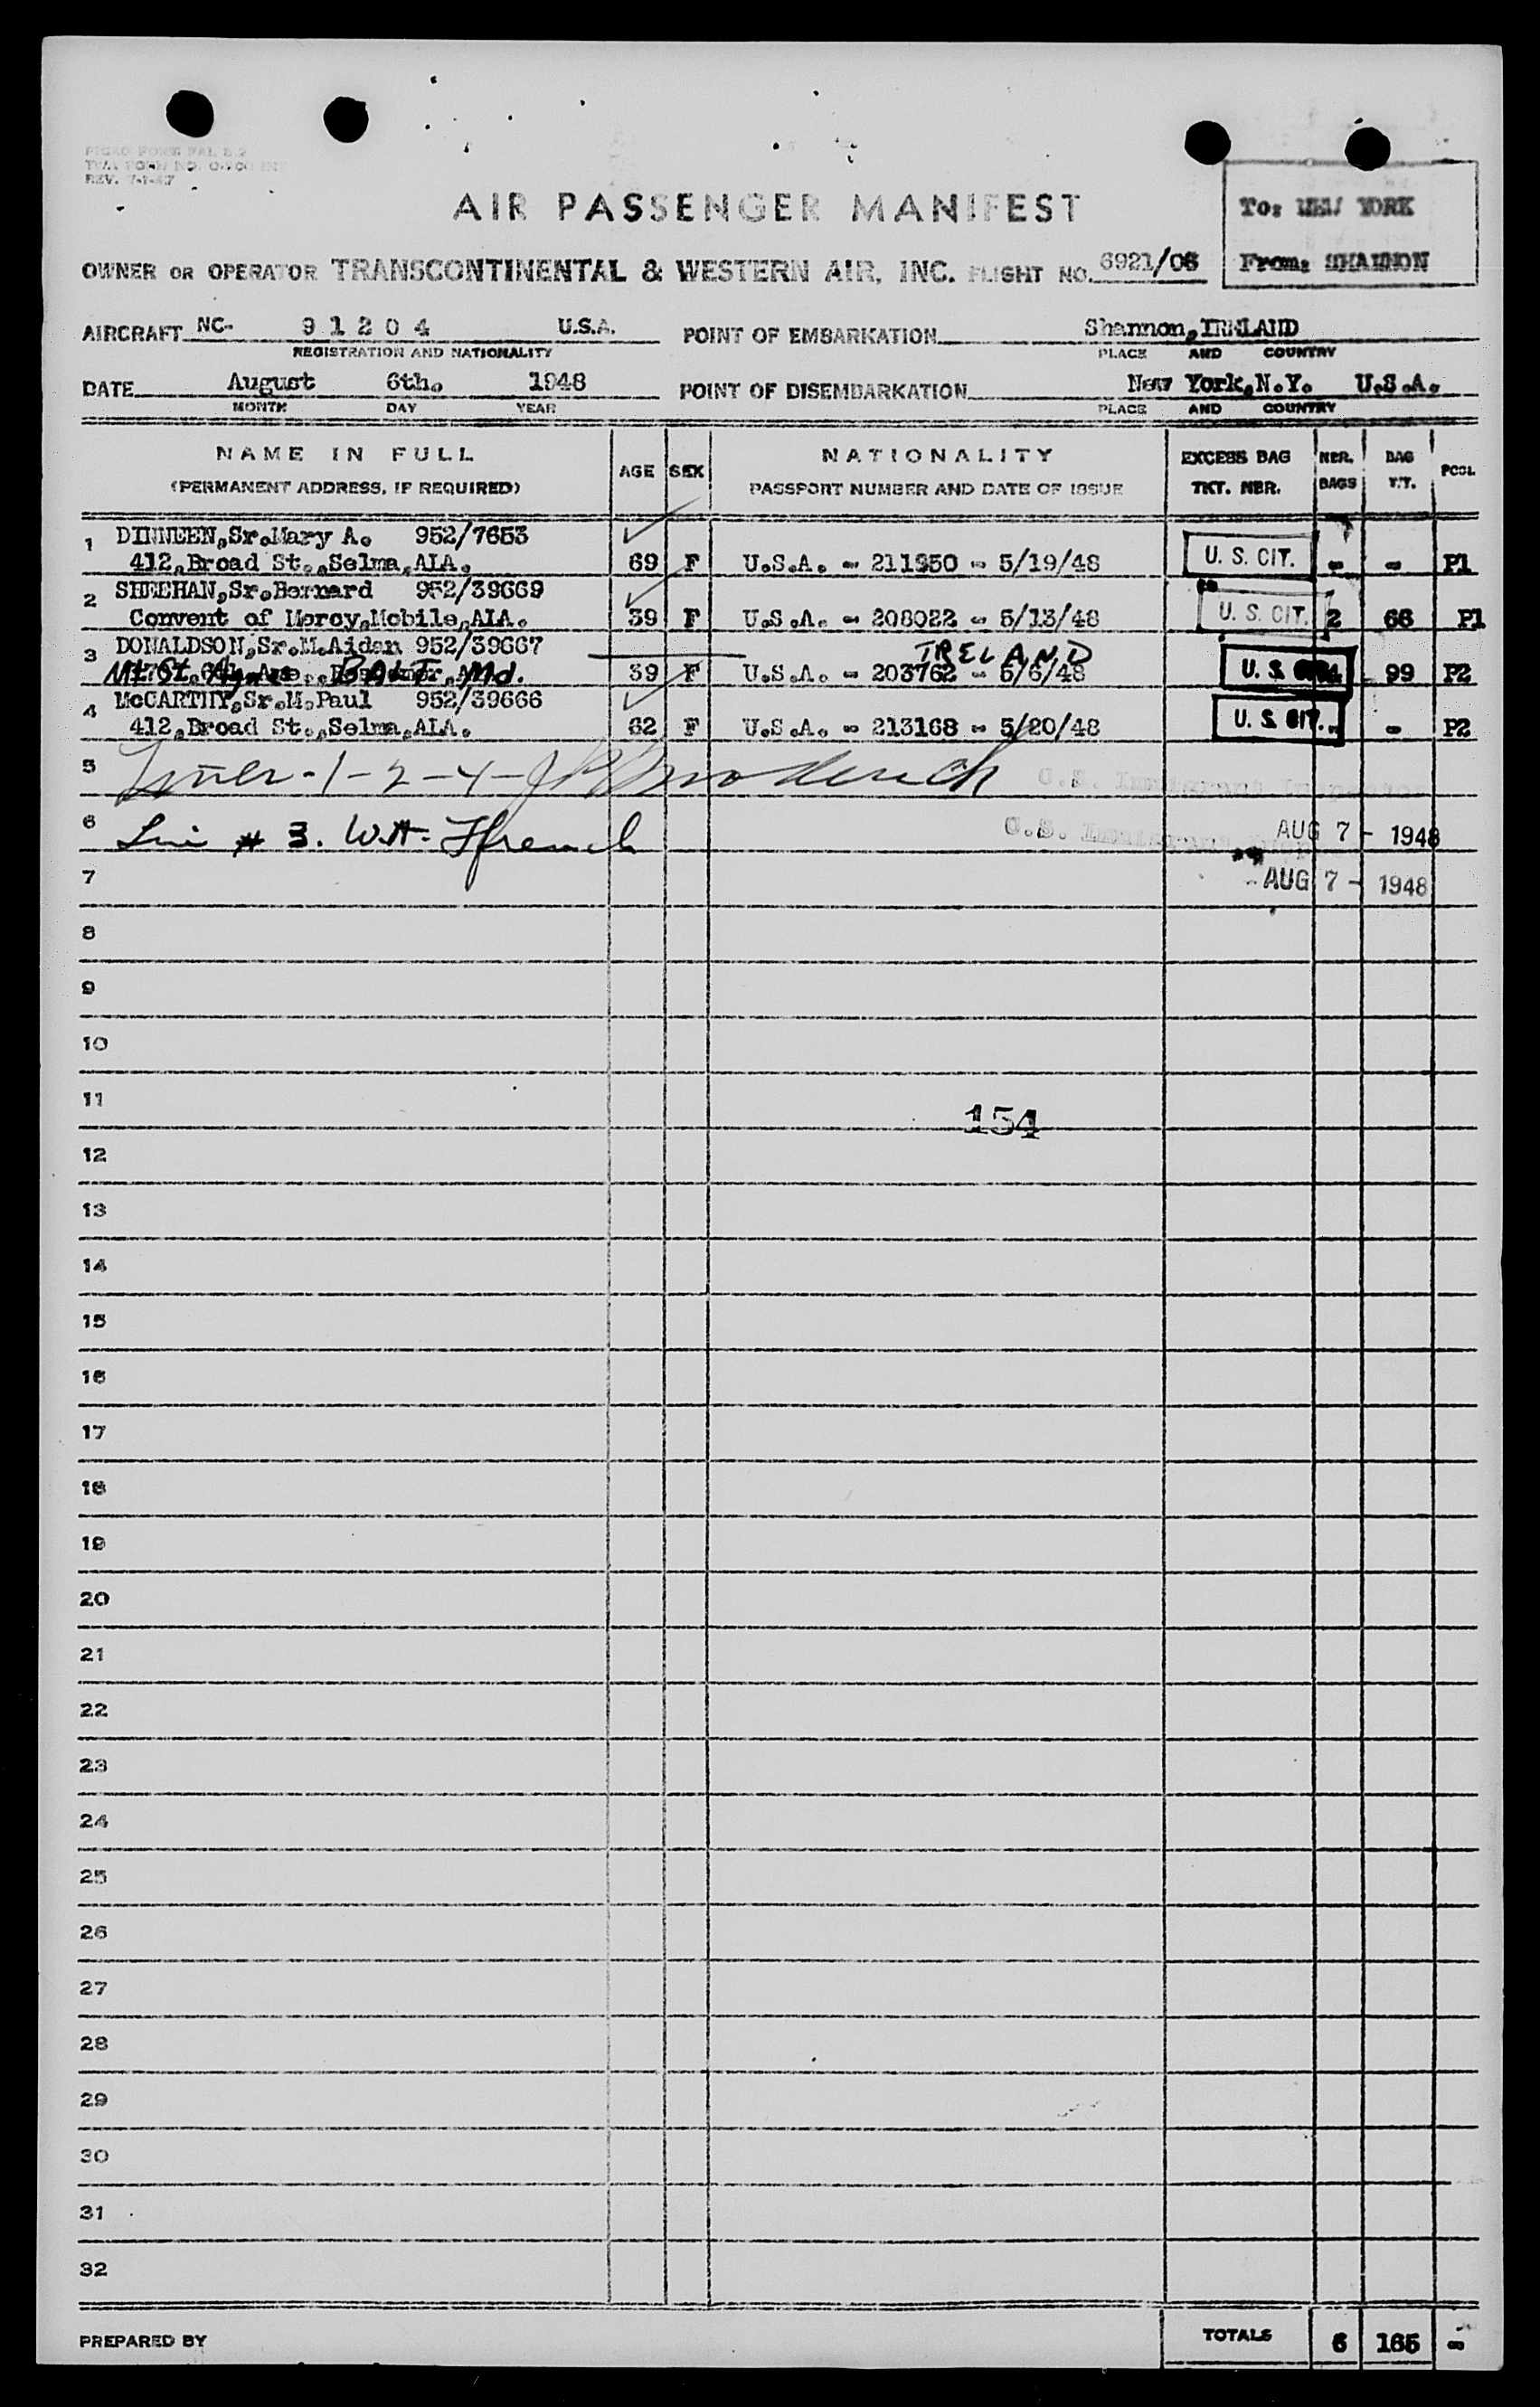 REV. 7-1-47
AIR PASSENGER MANIFEST
To: NEW YORK
From: SHANNON
OWNER OR OPERATOR TRANSCONTINENTAL & WESTERN AIR, INC. FLIGHT NO. 6921/06
AIRCRAFT NC- 91204 U.S.A. POINT OF EMBARKATION Shannon, IRELAND
REGISTRATION AND NATIONALITY PLACE AND COUNTRY
DATE August 6th. 1948 POINT OF DISEMBARKATION New York,N.Y. U.S.A.
MONTH DAY YEAR PLACE AND COUNTRY
NAME IN FULL AGE SEX NATIONALITY EXCESS BAG NBR. BAG POOL
(PERMANENT ADDRESS, IF REQUIRED) PASSPORT NUMBER AND DATE OF ISSUE TKT. NBR. BAGS WT.
1 DINNEEN,Sr.Mary A. 952/7653
412,Broad St.,Selma,ALA. 69 F U.S.A. - 211950 - 5/19/48 U. S. CIT. - - P1
2 SHEEHAN,Sr.Bernard 952/39669
Convent of Mercy,Mobile,ALA. 39 F U.S.A. - 208022 - 5/13/48 U. S. CIT. 2 66 P1
3 DONALDSON,Sr.M.Aidan 952/39667 IRELAND
Mt. St. Agnes BALT. Md. 39 F U.S.A. - 203762 - 5/6/48 U. S. 4 99 P2
4 McCARTHY,Sr.M.Paul 952/39666
412,Broad St.,Selma,ALA. 62 F U.S.A. - 213168 - 5/20/48 U. S. CIT. - - P2
5 Lines - 1 - 2 - 4 - U.S. Immigrant Inspector
6 Line # 3. W.H. Ffrench U.S. Immigrant AUG 7 - 1948
7 AUG 7 - 1948
8
9
10
11
154
12
13
14
15
16
17
18
19
20
21
22
23
24
25
26
27
28
29
30
31
32
PREPARED BY TOTALS 6 165 -